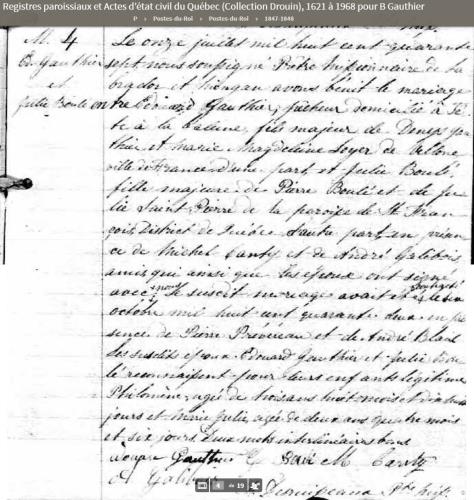 Registres paroissiaux et Actes d'état civil du Québec (Collection Drouin), 1621 à 1968 pour B Gauthier
P › Postes-du-Roi › Postes-du-Roi › 1847-1848
M. 4
Gauthier
et
Julie Boulé
Le onze juillet mil huit cent quarante
sept nous soussigné Prêtre Missionnaire de La
brador et Mingan avons bénit le mariage
entre Edouard Gauthier, facteur domicilié à Tê
te à la baleine, fils majeur de Denys Gau
thier et Marie Magdeleine Loyer de
ville de France d'une part, et Julie Boulé,
fille majeure de Pierre Boulé et de Ju
lie Saint Pierre de la paroisse de St. Fran
çois District de Québec d'autre part, en présen
ce de Michel Canty et de André Galibois
amis qui ainsi que les époux ont signé
avec nous. Le susdit mariage avait été contracté le dix
octobre mil huit cent quarante deux en pré
sence de Pierre et de André Blaik
Les susdits époux Edouard Gauthier et Julie Bou
lé reconnaissent pour leurs enfants légitimes
Philomène agée de trois ans huit mois et
jours et Marie Julie, agée de deux ans quatre mois
et six jours. Deux mots interlinéaires bons
Gauthier M Canty
A Galibois Ptre Miss.
4 de 19